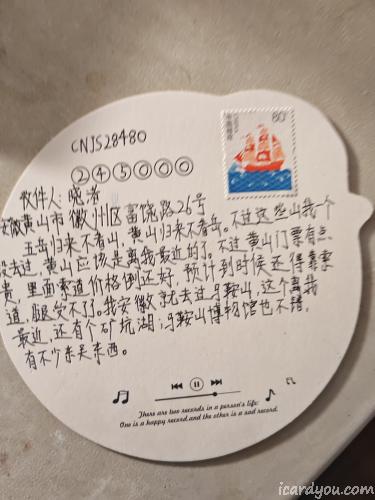 CNJS28480
80
中国邮政
245000
收件人:晓渚
安徽黄山市徽州区富饶路26号
五岳归来不看山,黄山归来不看岳。不过这些山我一个
没去过,黄山应该是离我最近的了。不过黄山门票有点
贵,里面索道价格倒还好,预计到时候还得靠索
道,腿受不了。我安徽就去过马鞍山,这个离我
最近,还有个矿坑湖;马鞍山博物馆也不错,
有不少东关东西。
There are two records in a person's life:
One is a happy record,and the other is a sad record.
icardyou.com